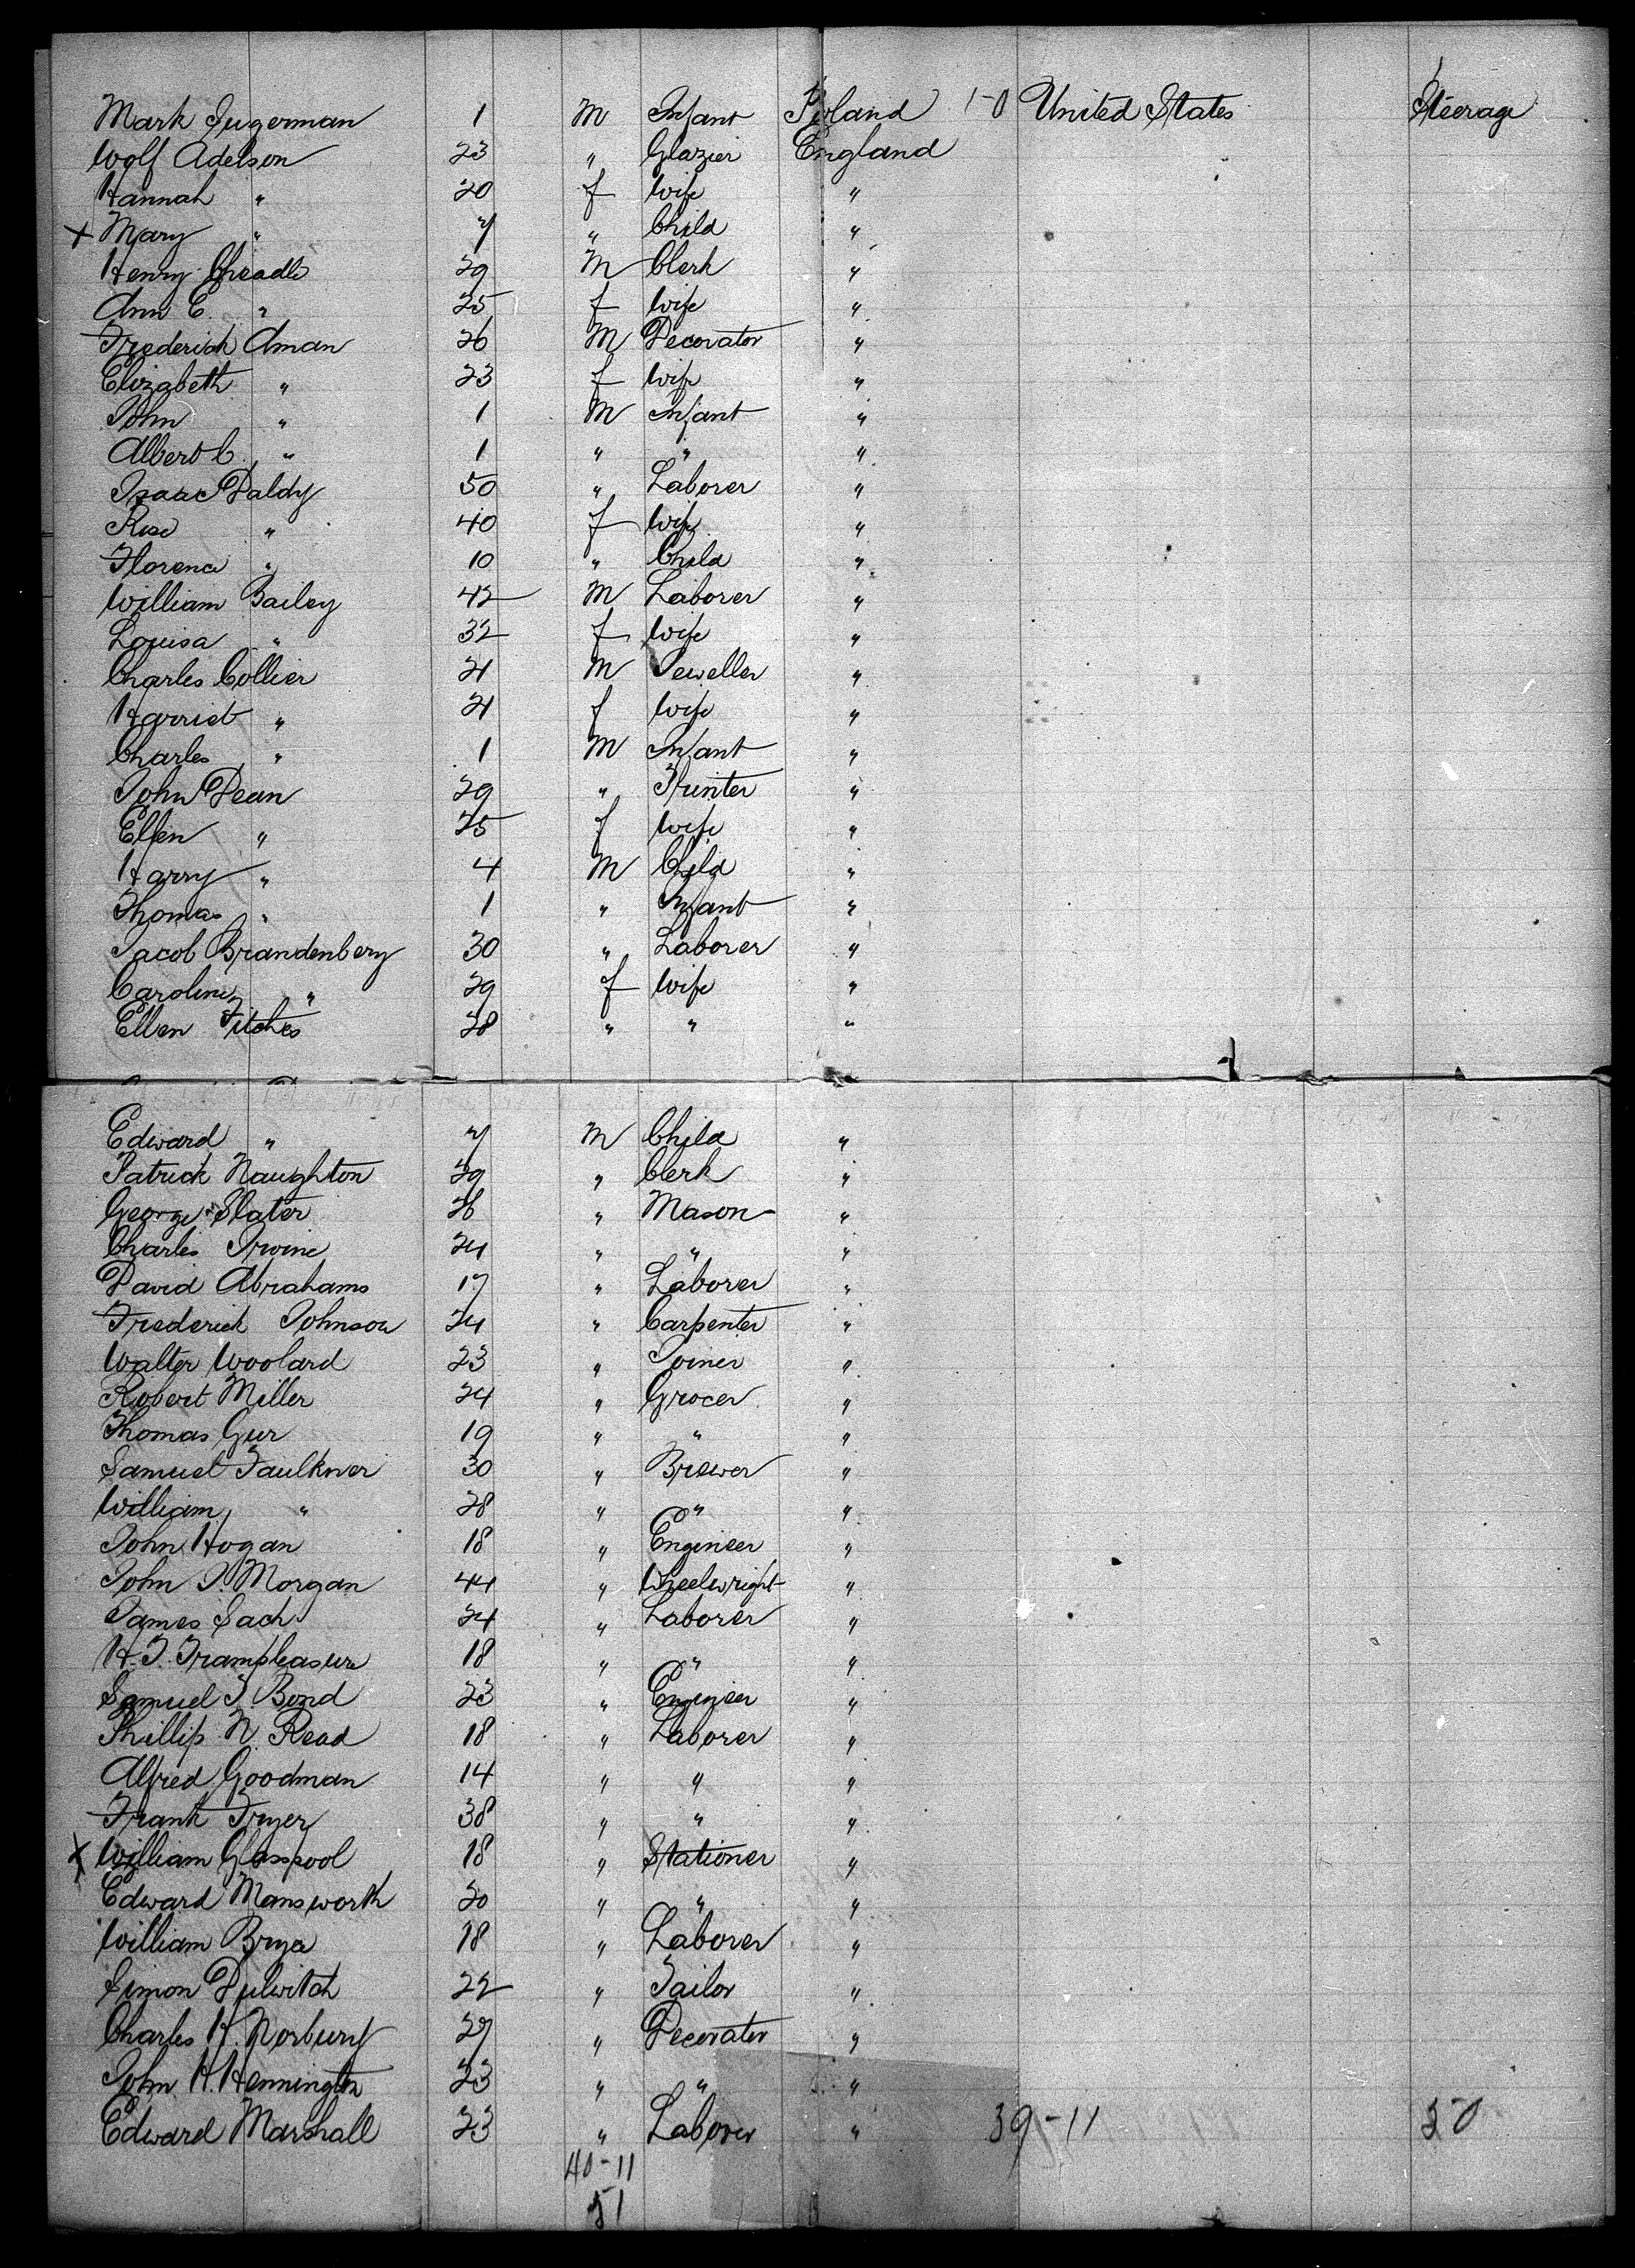 Mark Sugerman 1 M Infant Poland 1-0 United States Steerage
Wolf Adelson 23 " Glazier England
Hannah " 20 f Wife "
x Mary " 7 " Child "
Henry Cheadle 29 M Clerk "
Ann E. " 25 f Wife "
Frederick Aman 26 M Decorator "
Elizabeth " 23 f Wife "
John " 1 M Infant "
Albert C. " 1 " " "
Isaac Daldy 50 " Laborer "
Rose " 40 f Wife "
Florence " 10 " Child "
William Bailey 42 M Laborer "
Louisa " 32 f Wife "
Charles Collier 21 M Jeweller "
Harriet " 21 f Wife "
Charles " 1 M Infant "
John Dean 29 " Printer "
Ellen " 25 f Wife "
Harry " 4 M Child "
Thomas " 1 " Infant "
Jacob Brandenberg 30 " Laborer "
Caroline " 29 f Wife "
Ellen Fitches 28 " " "
Edward " 7 M Child "
Patrick Naughton 29 " Clerk "
George Slater 26 " Mason "
Charles Irvine 24 " " "
David Abrahams 17 " Laborer "
Frederick Johnson 24 " Carpenter "
Walter Woolard 23 " Joiner "
Robert Miller 24 " Grocer "
Thomas Gur 19 " " "
Samuel Faulkner 30 " Brewer "
William " 28 " " "
John Hogan 18 " Engineer "
John I. Morgan 44 " Wheelwright "
James Sach 24 " Laborer "
H. T. Trampleasure 18 " " "
Samuel T. Bond 23 " Engineer "
Phillip N. Read 18 " Laborer "
Alfred Goodman 14 " " "
Frank Fryer 38 " " "
x William Glasspool 18 " Stationer "
Edward Mansworth 20 " " "
William Brya 18 " Laborer "
Simon Dulwitch 22 " Tailor "
Charles H. Norbury 27 " Decorator "
John H. Hennington 23 " " "
Edward Marshall 23 " Laborer " 39-11 50
40-11
51